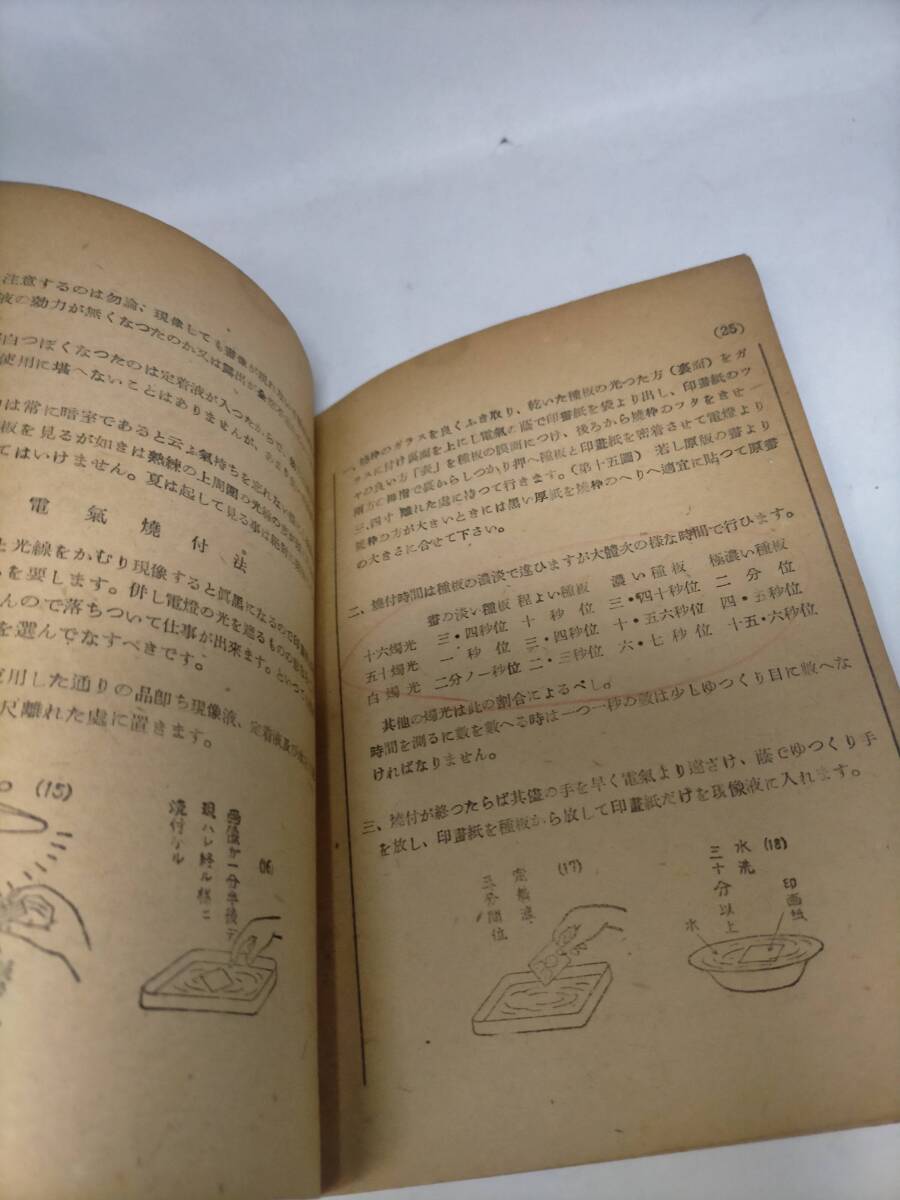 注意するのは勿論、現像しても畫像が現れ
液の効力が無くなつたのか又は露出が
白つぽくなつたのは定着液が入つたからで、
使用に堪へないことはありませんが、
は常に暗室であると云ふ氣持ちを忘れない
板を見るが如きは熟練の上周圍の光線の
てはいけません。夏は起して見る事は絶對
電氣燒付法
と光線をかむり現像すると眞黒になるので印畫
を要します。併し電燈の光を遮るもの
んので落ちついて仕事が出來ます。といつ
を選んでなすべきです。
用した通りの品卽ち現像液、定着液及
尺離れた處に置きます。
(15)
(16)
畫像ガ一分半後デ
現ハレ終ル樣ニ
燒付ケル
(25)
一、燒枠のガラスを良くふき取り、乾いた種板の光つた方(裏面)をガ
ラスに付け裏面を上にし電氣の蔭で印畫紙を袋より出し、印畫紙のツ
ヤの良い方「表」を種板の膜面につけ、後ろから燒枠のフタをきせ一
兩方で裏からしつかり押へ種板と印畫紙を密着させて電燈より
三、四寸離れた處に持つて行きます。(第十五圖)若し原版の畫より
燒枠の方が大きいときには黒い厚紙を燒枠のへりへ適宜に貼つて原畫
の大きさに合せて下さい。
二、燒付時間は種板の濃淡で違ひますが大體次の樣な時間で行ひます。
畫の淡い種板 程よい種板 濃い種板 極濃い種板
十六燭光 三・四秒位 十秒位 三・四十秒位 二分位
五十燭光 一秒位 三・四秒位 十・五六秒位 四・五秒位
百燭光 二分ノ一秒位 二・三秒位 六・七秒位 十五・六秒位
其他の燭光は此の割合によるべし。
時間を測るに數を數へる時は一つ一秒の數は少しゆつくり目に數へな
ければなりません。
三、燒付が終つたらば其儘の手を早く電氣より遠ざけ、蔭でゆつくり手
を放し、印畫紙を種板から放して印畫紙だけを現像液に入れます。
(17)
定着液
三分間位
(18)
水洗
三十分以上
印画紙
水